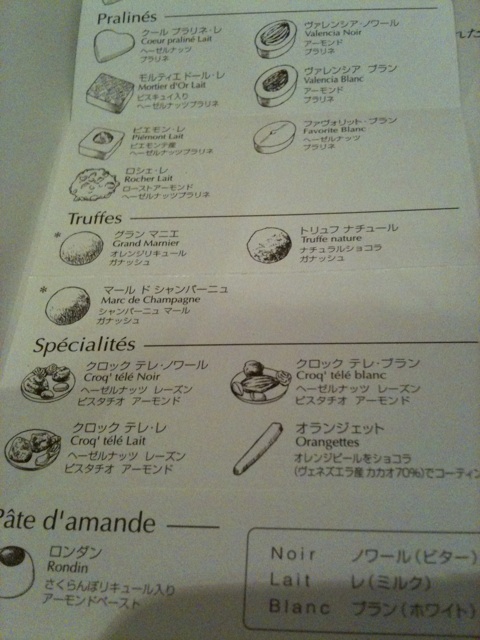 Pralinés
クール プラリネ・レ
Coeur praliné Lait
ヘーゼルナッツ
プラリネ
ヴァレンシア・ノワール
Valencia Noir
アーモンド
プラリネ
モルティエ ドール・レ
Mortier d'Or Lait
ビスキュイ入り
ヘーゼルナッツプラリネ
ヴァレンシア ブラン
Valencia Blanc
アーモンド
プラリネ
ピエモン・レ
Piémont Lait
ピエモンテ産
ヘーゼルナッツプラリネ
ファヴォリット・ブラン
Favorite Blanc
ヘーゼルナッツ
プラリネ
ロシェ・レ
Rocher Lait
ローストアーモンド
ヘーゼルナッツプラリネ
Truffes
* グラン マニエ
Grand Marnier
オレンジリキュール
ガナッシュ
トリュフ ナチュール
Truffe nature
ナチュラルショコラ
ガナッシュ
* マール ド シャンパーニュ
Marc de Champagne
シャンパーニュ マール
ガナッシュ
Spécialités
クロック テレ・ノワール
Croq' télé Noir
ヘーゼルナッツ レーズン
ピスタチオ アーモンド
クロック テレ・ブラン
Croq' télé blanc
ヘーゼルナッツ レーズン
ピスタチオ アーモンド
クロック テレ・レ
Croq' télé Lait
ヘーゼルナッツ レーズン
ピスタチオ アーモンド
オランジェット
Orangettes
オレンジピールをショコラ
(ヴェネズエラ産 カカオ70%)でコーティン
Pâte d'amande
ロンダン
Rondin
さくらんぼリキュール入り
アーモンドペースト
Noir ノワール(ビター)
Lait レ(ミルク)
Blanc ブラン(ホワイト)